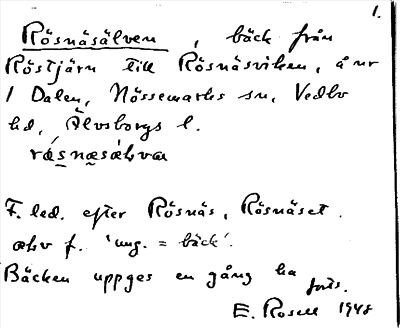 1.
Rösnäsälven, bäck från
Röstjärn till Rösnäsviken, å nr
1 Dalen, Nössemarks sn, Vedbo
hd, Älvsborgs l.
F. led. efter Rösnäs, Rösnäset.
ælv f. 'ung. = bäck'.
Bäcken uppges en gång ha
forts.
E. Rosell 1948